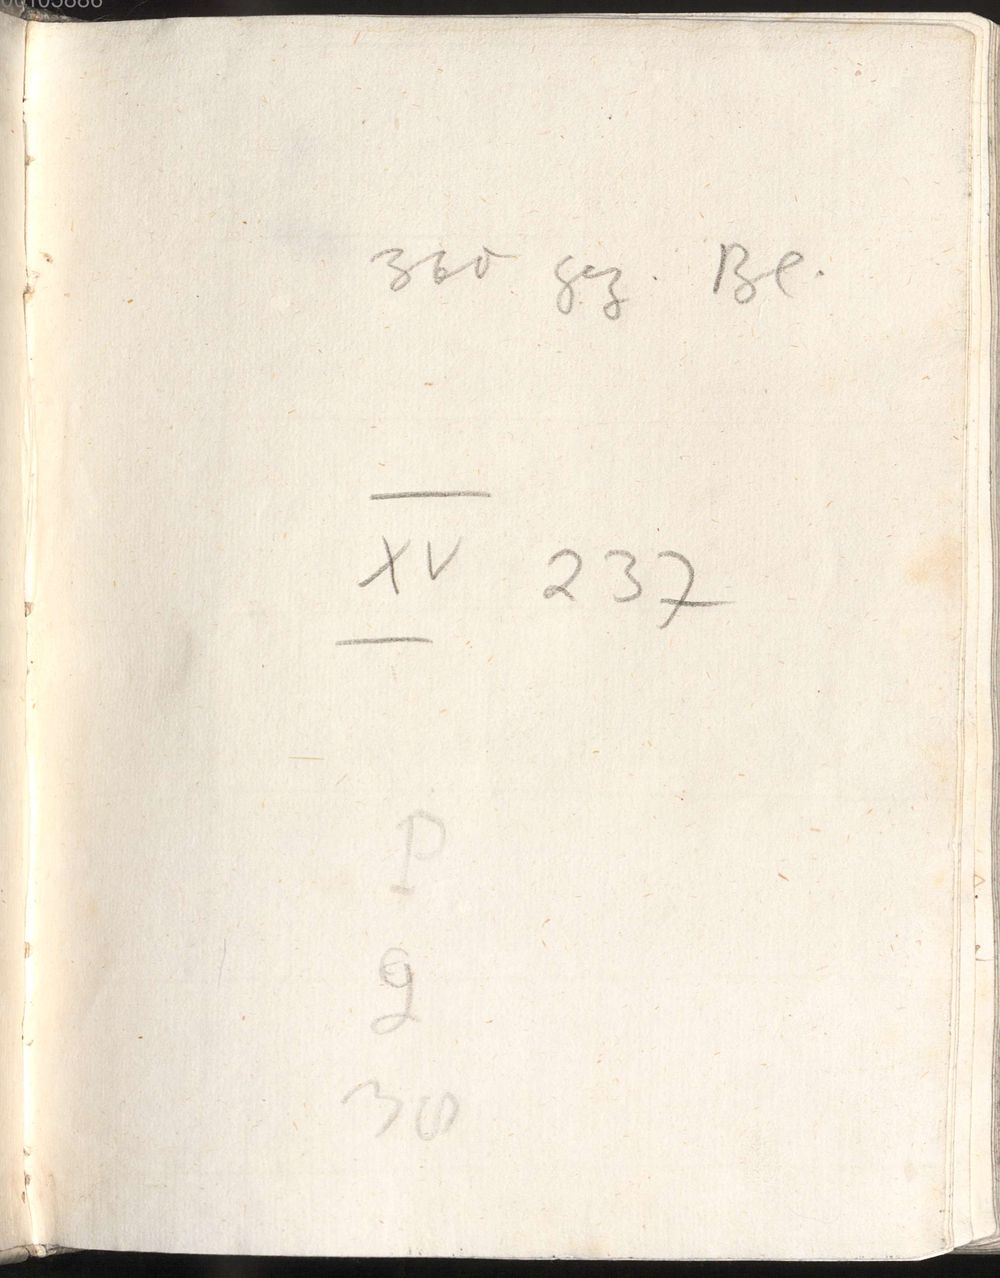 360 gez. Bl.
XV 237
P
g
30